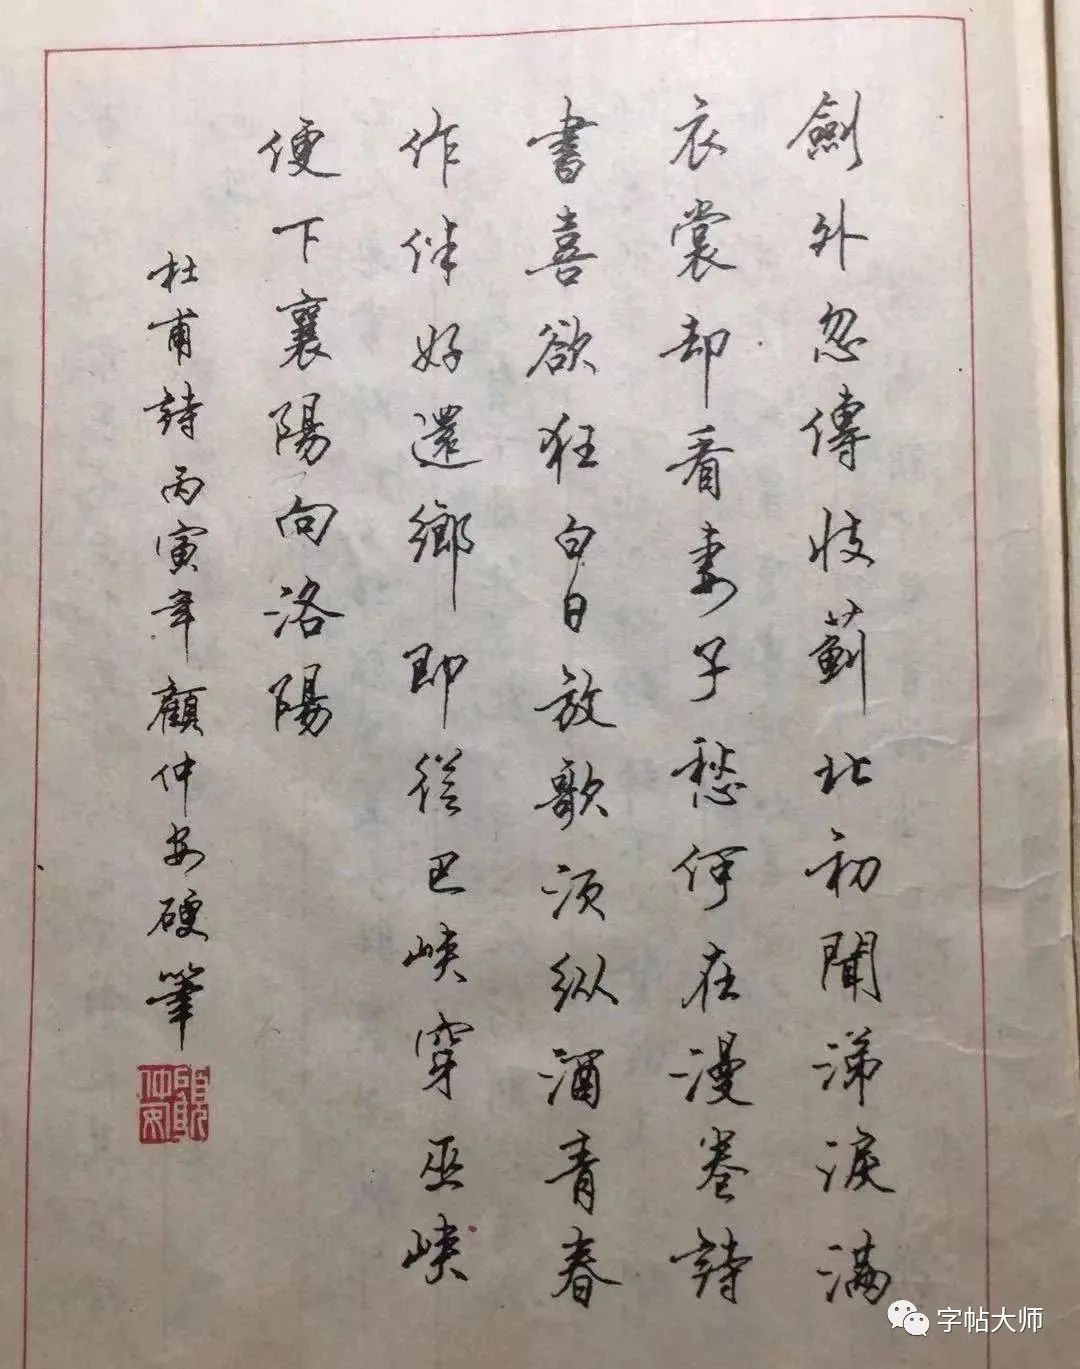 劍外忽傳收薊北初聞涕淚滿
衣裳却看妻子愁何在漫卷詩
書喜欲狂白日放歌須纵酒青春
作伴好還鄉即從巴峽穿巫峽
便下襄陽向洛陽
杜甫詩丙寅年顧仲安硬筆
顧仲安
字帖大师